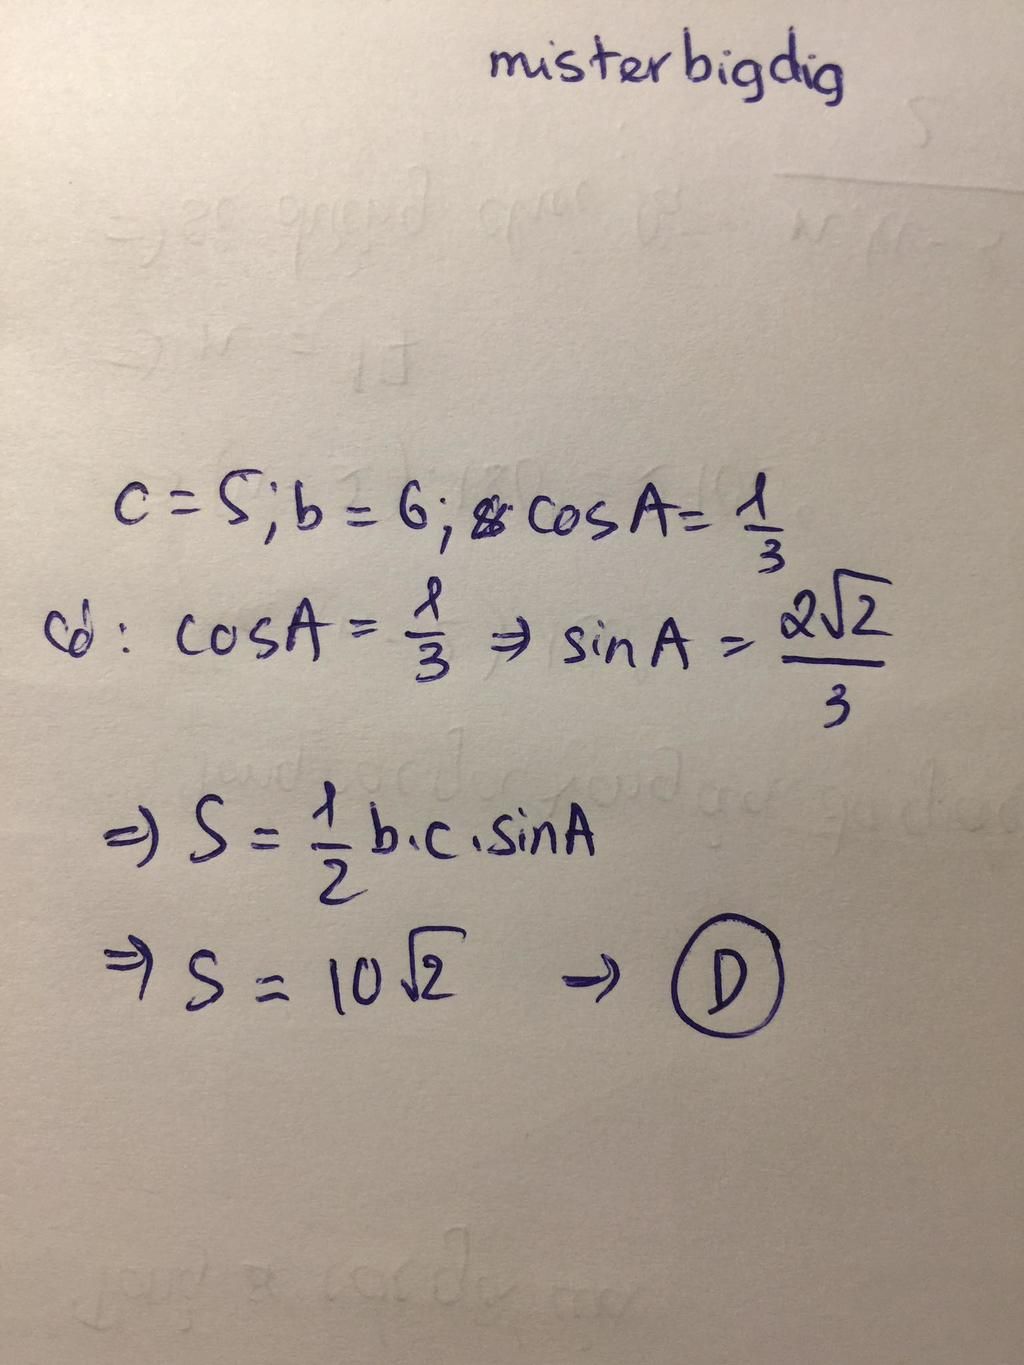 misterbigdig
c = 5; b = 6; cos A = 1/3
Có: cosA = 1/3 ⇒ sin A = 2√2/3
⇒ S = 1/2 b.c.sinA
⇒ S = 10√2 → D